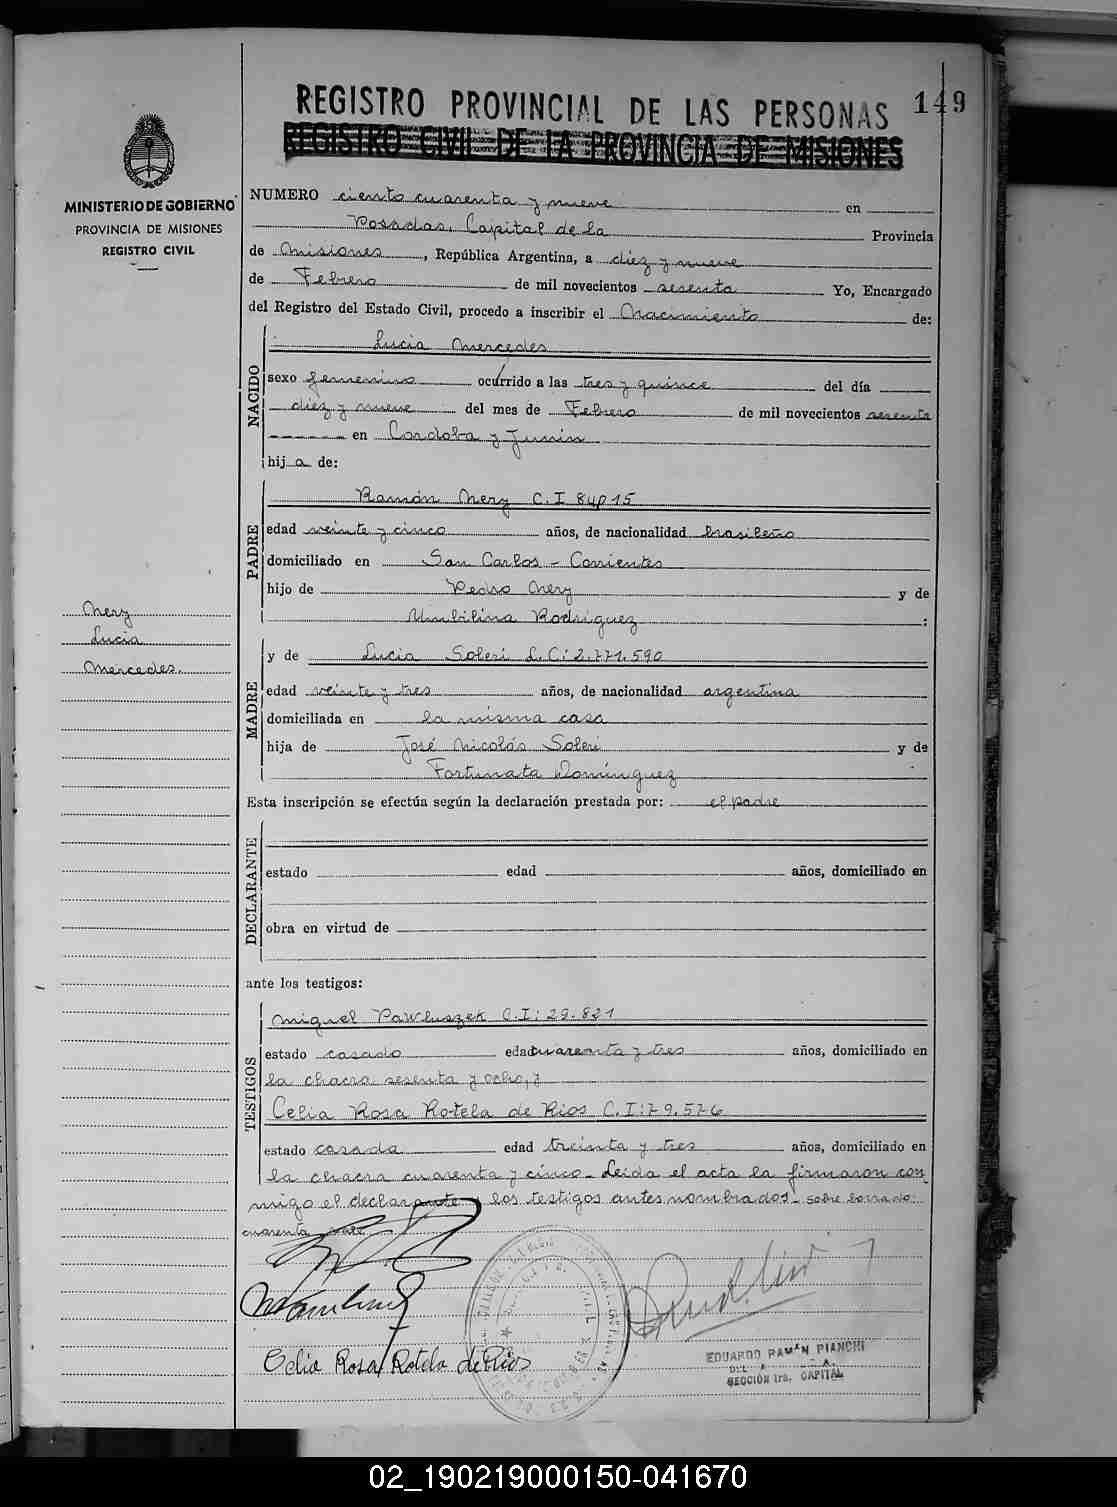 REGISTRO PROVINCIAL DE LAS PERSONAS 149
REGISTRO CIVIL DE LA PROVINCIA DE MISIONES
MINISTERIO DE GOBIERNO
PROVINCIA DE MISIONES
REGISTRO CIVIL
NUMERO ciento cuarenta y nueve en
Posadas, Capital de la Provincia
de Misiones, República Argentina, a diez y nueve
de Febrero de mil novecientos sesenta Yo, Encargado
del Registro del Estado Civil, procedo a inscribir el Nacimiento de:
NACIDO
Lucia Mercedes
sexo femenino ocurrido a las tres y quince del día
diez y nueve del mes de Febrero de mil novecientos sesenta
en Cordoba y Junin
hij a de:
PADRE
Ramón Nery C.I 84015
edad veinte y cinco años, de nacionalidad brasileño
domiciliado en San Carlos - Corrientes
hijo de Pedro Nery y de
Umbilina Rodriguez :
Nery
Lucia
Mercedes.
MADRE
y de Lucia Soleri L.C: 2.771.590
edad veinte y tres años, de nacionalidad argentina
domiciliada en la misma casa
hija de José Nicolás Soleri y de
Fortunata Domínguez
Esta inscripción se efectúa según la declaración prestada por: el padre
DECLARANTE
estado edad años, domiciliado en
obra en virtud de
ante los testigos:
TESTIGOS
Miguel Pawluszek C.I: 29.821
estado casado edad cuarenta y tres años, domiciliado en
la chacra sesenta y ocho, y
Celia Rosa Rotela de Rios C.I: 79.576
estado casada edad treinta y tres años, domiciliado en
la chacra cuarenta y cinco - Leída el acta la firmaron con
migo el declarante y los testigos antes nombrados - sobre borrado:
cuarenta vale
Celia Rosa Rotela de Rios
EDUARDO RAMON PIANCHI
SECCIÓN 1ra. CAPITAL
02_190219000150-041670